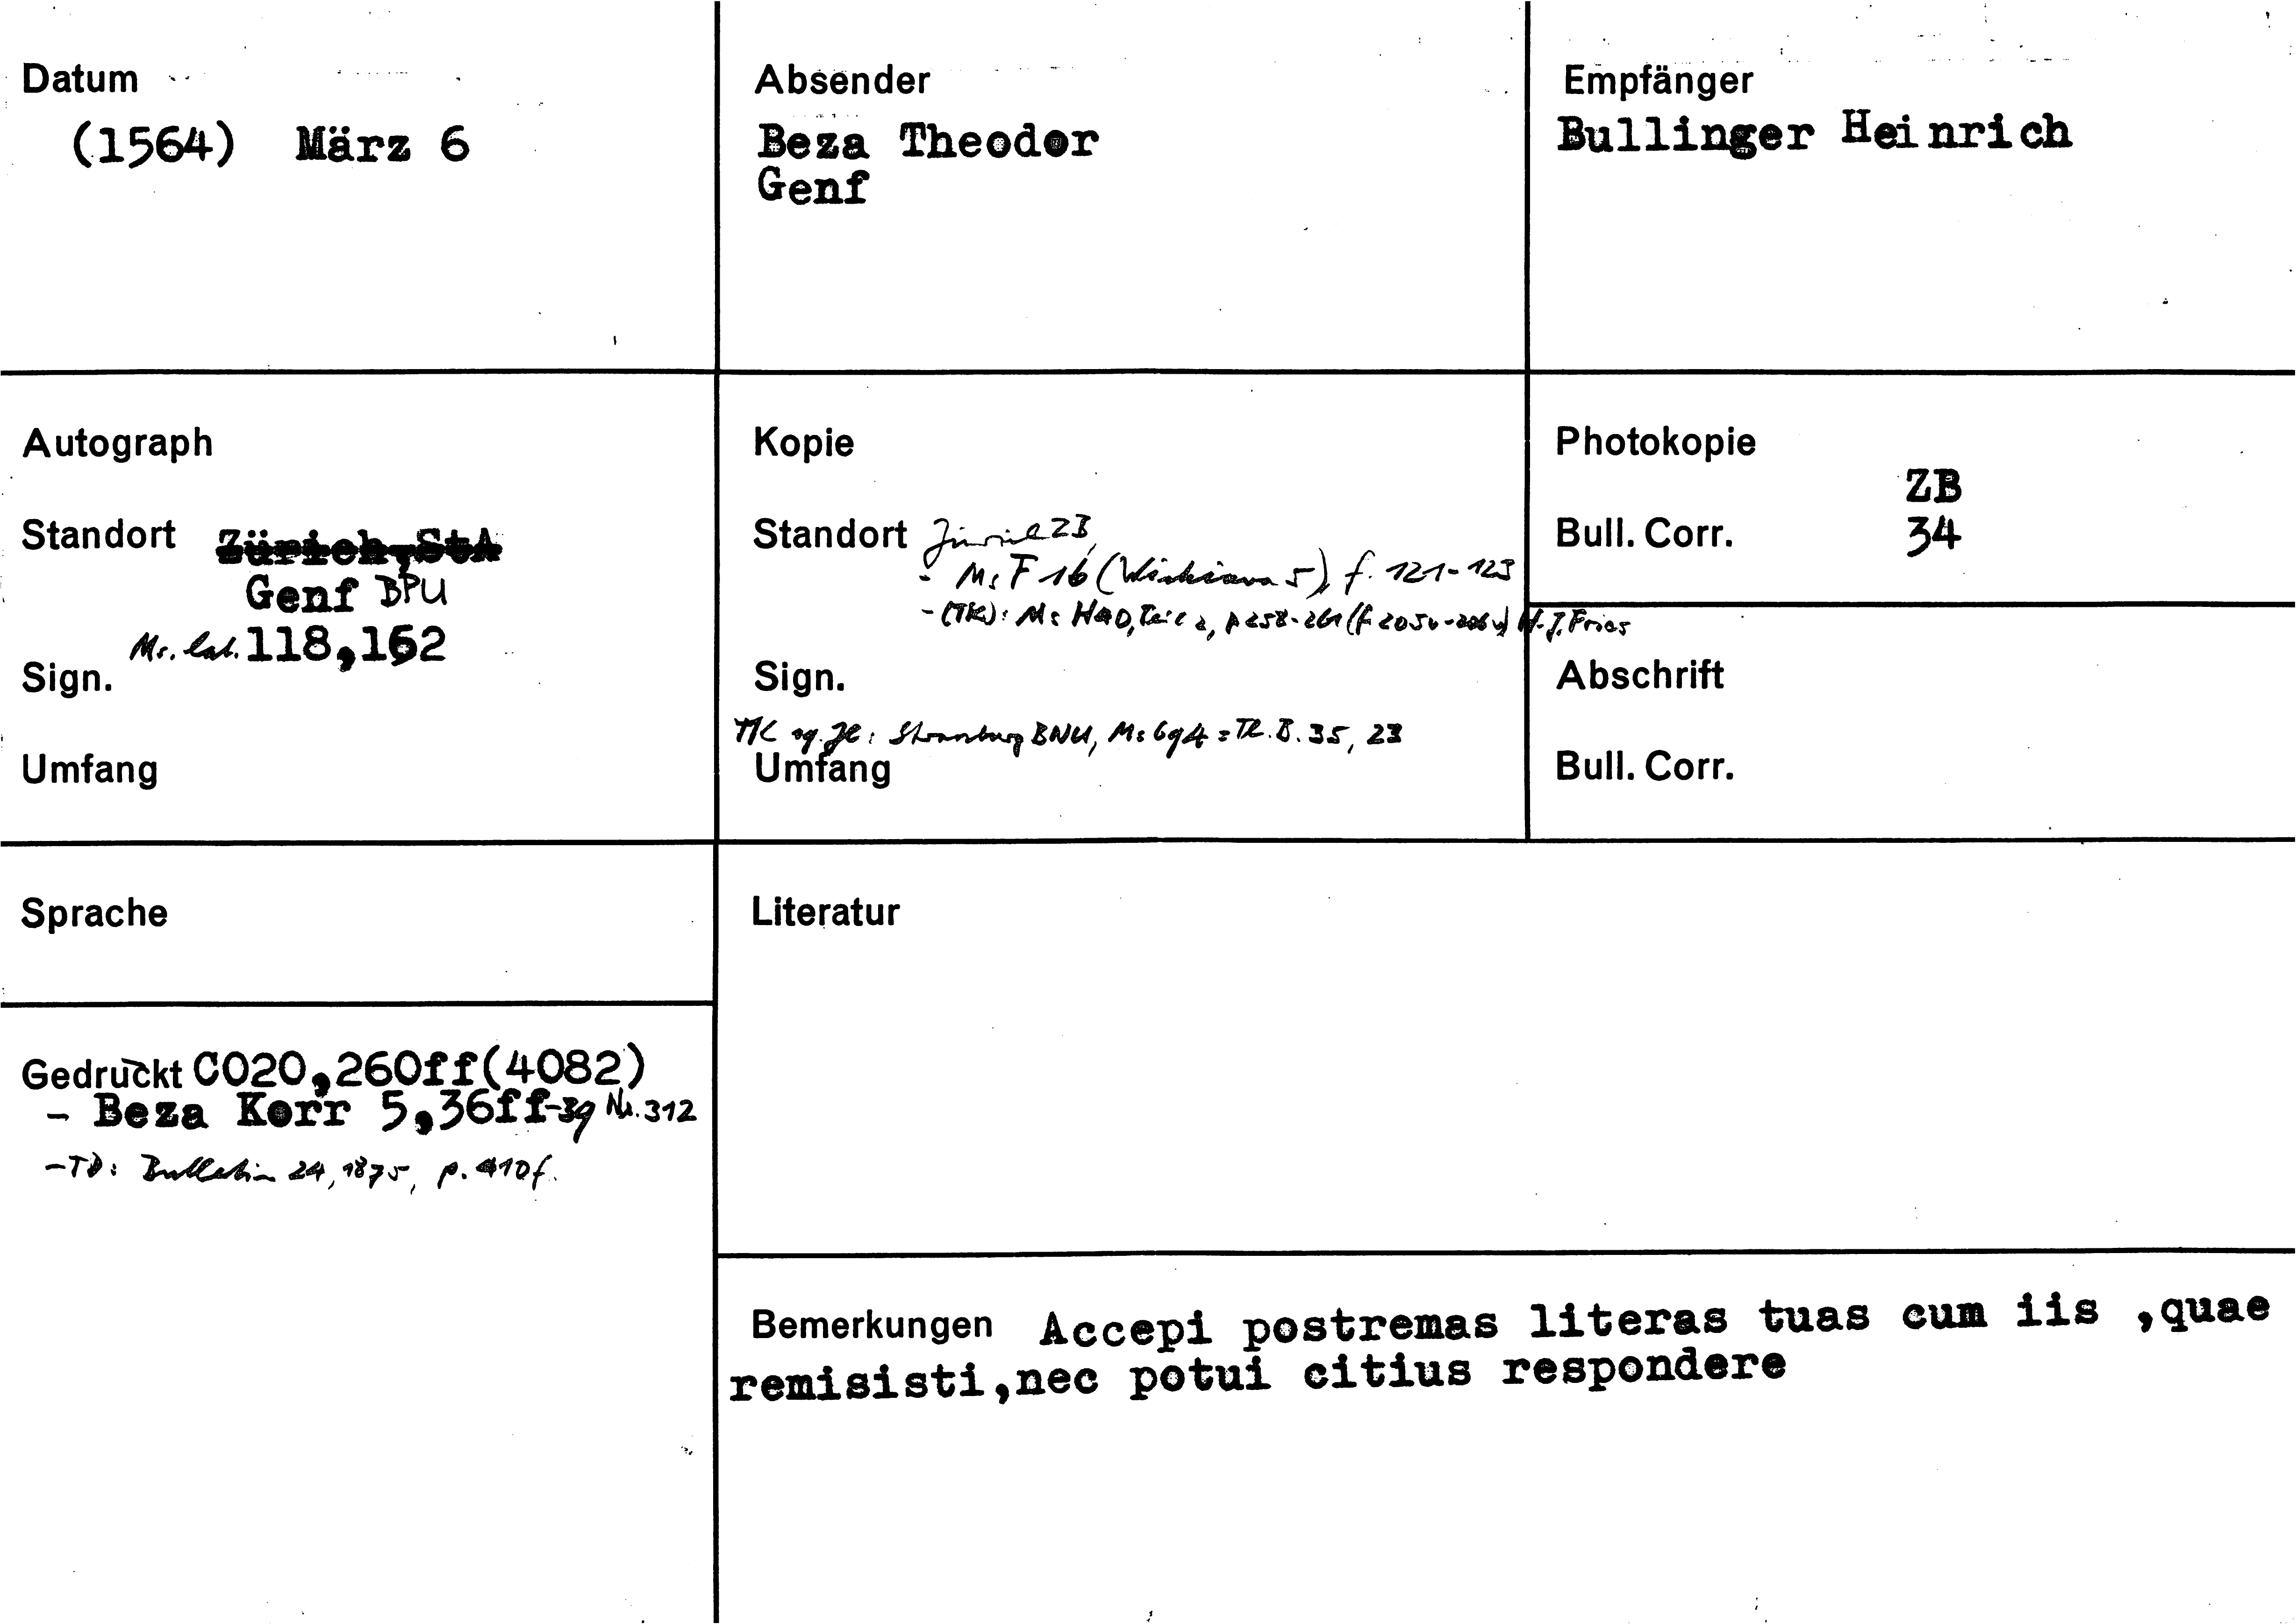 Datum
(1564) März 6
Absender
Beza Theodor
Genf
Empfänger
Bullinger Heinrich
Autograph
Standort Zürich,StA
Genf BPU
Ms. lat. 118,152
Sign.
Umfang
Kopie
Standort Zürich ZB,
- Ms F 16 (Wickiana 5), f. 121-123
- (TK): Ms H 40, Teil 2, p 258-261 (f 205v-206v) H. J. Fries
Sign.
Strassburg BNU, Ms 694 = Th. B. 35, 23
Umfang
Photokopie
ZB
Bull. Corr. 34
Abschrift
Bull. Corr.
Sprache
Gedruckt CO20,260ff(4082)
- Beza Korr 5,36ff-39 Nr. 312
- TD: Bulletin 24, 1875, p. 410f.
Literatur
Bemerkungen Accepi postremas literas tuas cum iis ,quae
remisisti,nec potui citius respondere